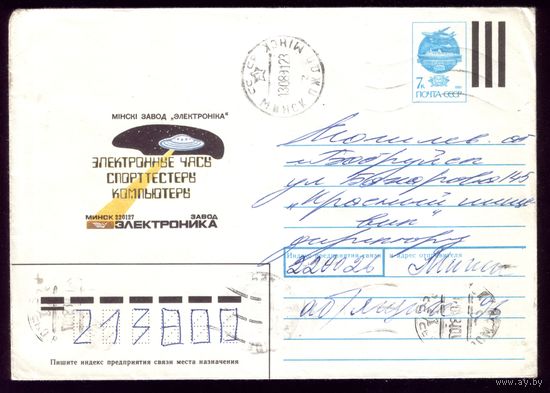 МІНСКІ ЗАВОД „ЭЛЕКТРОНІКА“
ЭЛЕКТРОННЫЕ ЧАСЫ
СПОРТТЕСТЕРЫ
КОМПЬЮТЕРЫ
МИНСК 220127 ЗАВОД
ЭЛЕКТРОНИКА
МИНСК
7к
ПОЧТА СССР
Могилев. об
г. Бобруйск
ул. 145
"Красный пище
вик"
директору
Индекс предприятия связи и адрес отправителя
220026 Минск
213800
Пишите индекс предприятия связи места назначения
www.ay.by